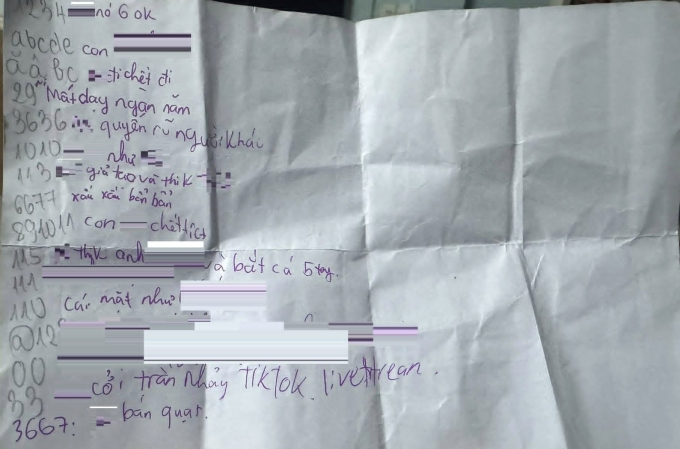 1234 nó 6 ok
abcde con
ăâbc đi chết đi
29 Mất dạy ngàn năm
3636 quyến rũ người khác
1010 như
113 giả tạo và thik
6677 xấu xấu bẩn bẩn
891011 con chết tiệt
115 thik anh và bắt cá 5 tay.
111
110 Cái mặt như
@12
00
33 cởi trần nhảy tiktok livetrean.
3667: bán quạt.